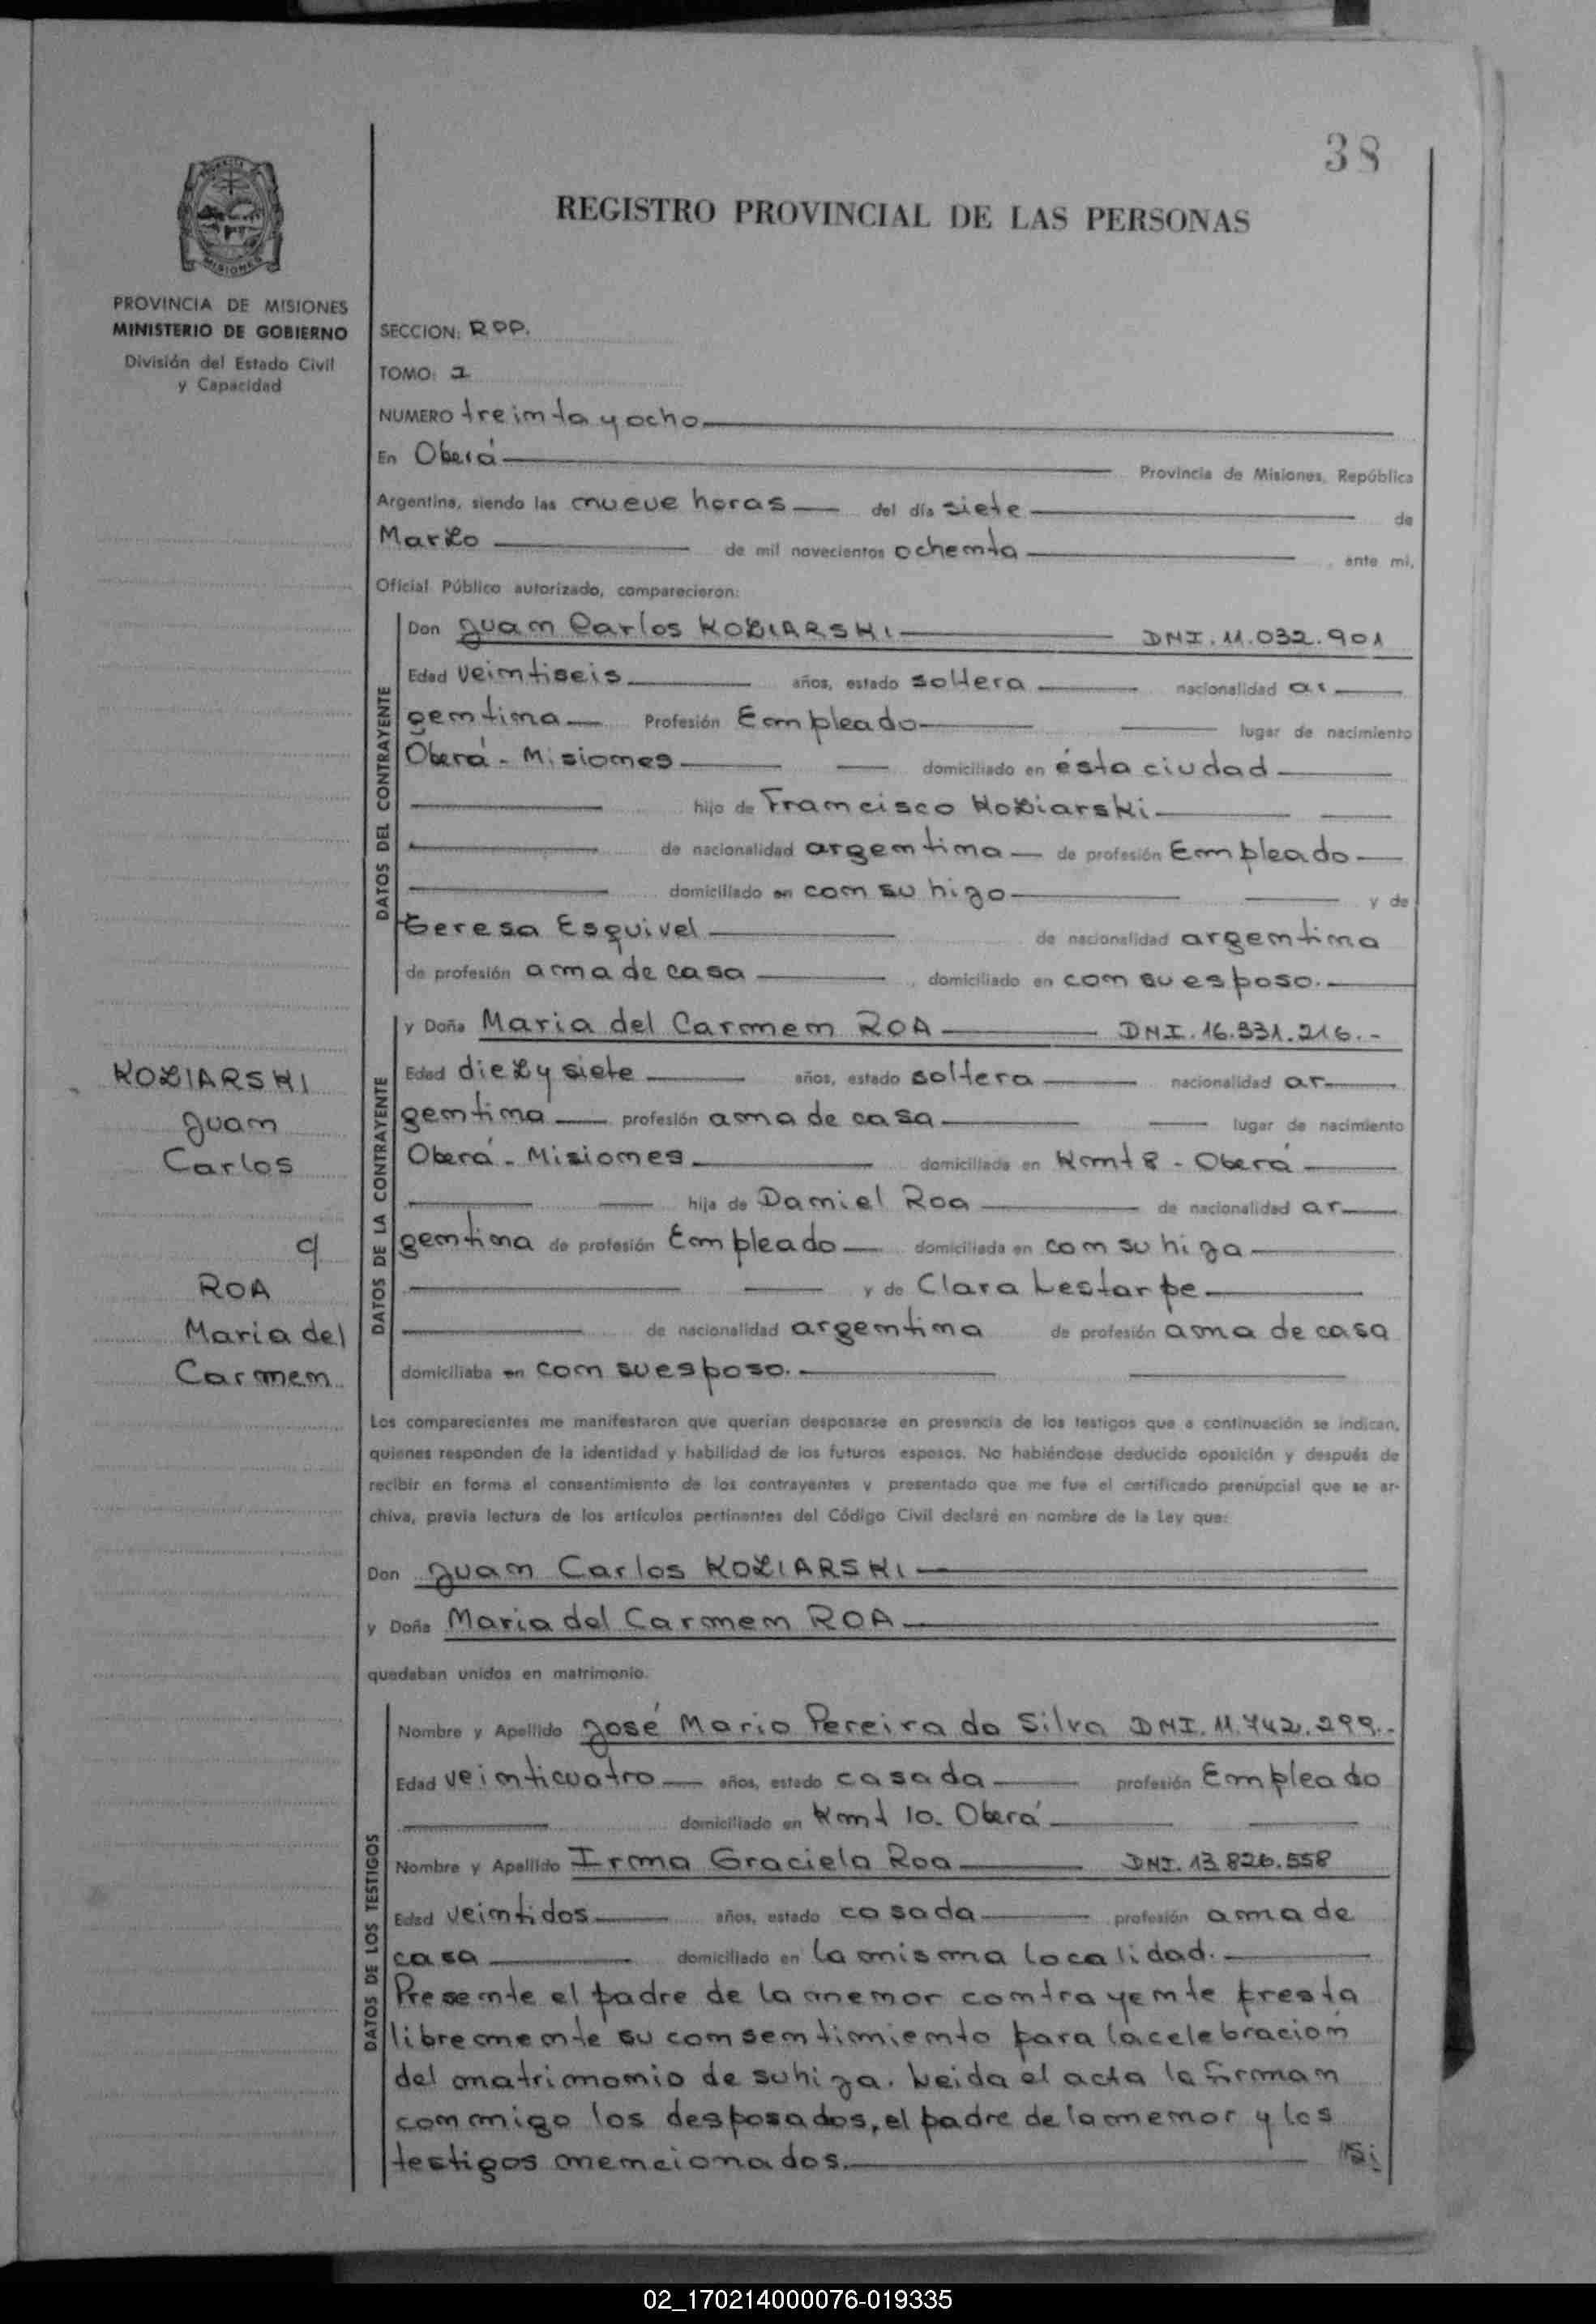 38
REGISTRO PROVINCIAL DE LAS PERSONAS
MISIONES
PROVINCIA DE MISIONES
MINISTERIO DE GOBIERNO
División del Estado Civil
y Capacidad
SECCION: ROP.
TOMO: I
NUMERO treinta y ocho
En Oberá Provincia de Misiones, República
Argentina, siendo las nueve horas del día siete de
Marzo de mil novecientos ochenta, ante mi,
Oficial Público autorizado, comparecieron:
DATOS DEL CONTRAYENTE
Don Juan Carlos KOZIARSKI DNI. 11.032.901
Edad veintiseis años, estado soltera nacionalidad ar
gentina Profesión Empleado lugar de nacimiento
Oberá - Misiones domiciliado en ésta ciudad
hijo de Francisco Koziarski
de nacionalidad argentina de profesión Empleado
domiciliado en con su hijo y de
teresa Esquivel de nacionalidad argentina
de profesión ama de casa, domiciliado en con su esposo.
DATOS DE LA CONTRAYENTE
y Doña Maria del Carmen ROA DNI. 16.331.216.-
Edad diez y siete años, estado soltera nacionalidad ar
gentina profesión ama de casa lugar de nacimiento
Oberá - Misiones domiciliada en Kmt 8 - Oberá
hija de Daniel Roa de nacionalidad ar
gentina de profesión Empleado domiciliada en con su hija
y de Clara Lestarpe
de nacionalidad argentina de profesión ama de casa
domiciliaba en con su esposo.
KOZIARSKI
Juan
Carlos
c/
ROA
Maria del
Carmen
Los comparecientes me manifestaron que querían desposarse en presencia de los testigos que a continuación se indican,
quienes responden de la identidad y habilidad de los futuros esposos. No habiéndose deducido oposición y después de
recibir en forma el consentimiento de los contrayentes y presentado que me fue el certificado prenupcial que se ar-
chiva, previa lectura de los artículos pertinentes del Código Civil declaré en nombre de la Ley que:
Don Juan Carlos KOZIARSKI
y Doña Maria del Carmen ROA
quedaban unidos en matrimonio.
DATOS DE LOS TESTIGOS
Nombre y Apellido José Mario Pereira da Silva DNI. 11.742.299.-
Edad veinticuatro años, estado casada profesión Empleado
domiciliado en Kmt 10. Oberá
Nombre y Apellido Irma Graciela Roa DNI. 13.826.558
Edad veintidos años, estado casada profesión ama de
casa domiciliado en la misma localidad.
Presente el padre de la menor contrayente presta
libremente su consentimiento para la celebración
del matrimonio de su hija. Leida el acta la firman
conmigo los desposados, el padre de la menor y los
testigos mencionados.
02_170214000076-019335